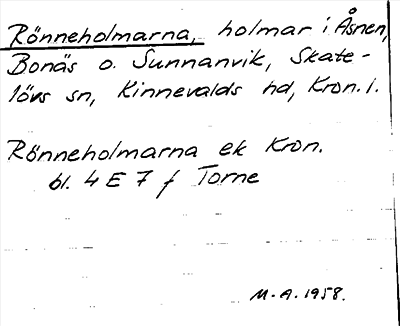 Rönneholmarna, holmar i Åsnen,
Bonäs o. Sunnanvik, Skate-
lövs sn, Kinnevalds hd, Kron. l.
Rönneholmarna ek Kron.
bl. 4 E 7 f Torne
M.A. 1958.